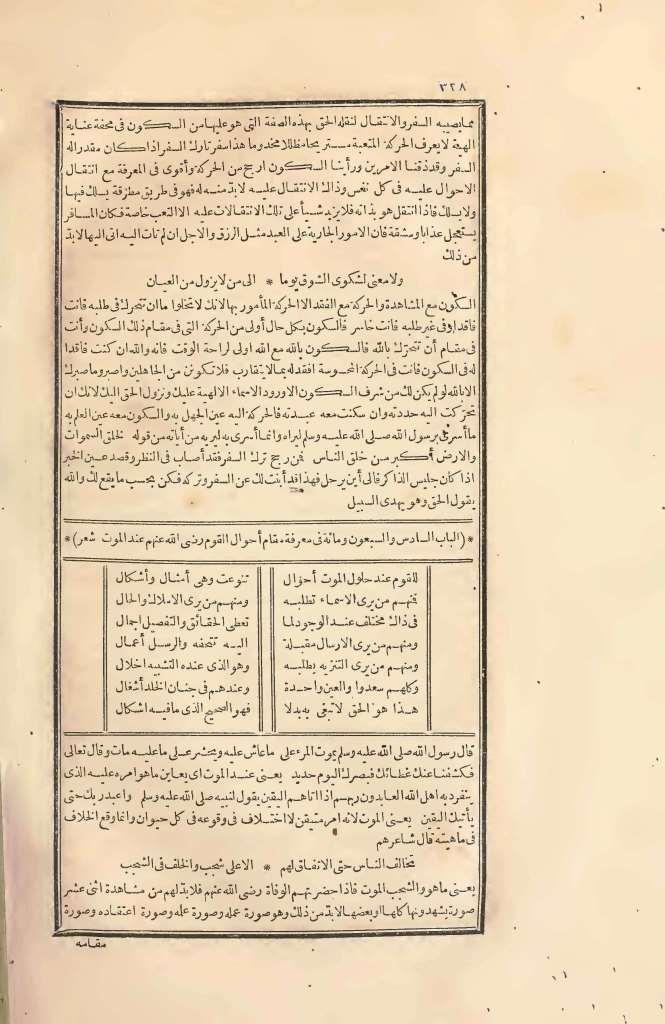 ٣٢٨
مما يصيبه السفر والانتقال لنقله الحق بهذه الصفة التى هو عليها من السكون فى محفة عناية
الهية لا يعرف الحركة المتعبة مستريحا مظللا مخدوما هذا سفر تارك السفر اذا كان مقدرا له
السفر وقد ذقنا الامرين ورأينا السكون ارجح من الحركة وأقوى فى المعرفة مع انتقال
الاحوال عليه فى كل نفس وذلك الانتقال عليه لا بد منه له فهو فى طريق مطرقة يسلك فيها
ولا يسلك فاذا انتقل هو بذاته فلا يزيد شيأ على تلك الانتقالات عليه الا التعب خاصة فكان المسافر
يستعجل عذابا ومشقة فان الامور الجارية على العبد مثل الرزق والاجل ان لم تات اليه اتى اليها لا بد
من ذلك
ولا معنى لشكوى الشوق يوما * الى من لا يزول من العيان
السكون مع المشاهدة والحركة مع الفقد الا الحركة المأمور بها لانك لا تخلوا ما ان تتحرك فى طلبه فانت
فاقد او فى غير طلبه فانت خاسر فالسكون بكل حال أولى من الحركة التى فى مقام ذلك السكون وأنت
فى مقام أن تتحرك بالله فالسكون بالله مع الله اولى لراحة الوقت فانه والله ان كنت فاقدا
له فى السكون فانت فى الحركة المحسوسة افقد له بما لا يتقارب فلا تكونن من الجاهلين واصبر وما صبرك
الا بالله لو لم يكن لك من شرف السكون الا ورود الاسماء الالهية عليك ونزول الحق اليك لانك ان
تحركت اليه حددته وان سكنت معه عبدته فالحركة اليه عين الجهل به والسكون معه عين العلم به
ما أسرى برسول الله صلى الله عليه وسلم ليراه وانما أسرى به ليريه من آياته من قوله لخلق السموات
والارض أكبر من خلق الناس فمن رجح ترك السفر فقد أصاب فى النظر وقصد عين الخبر
اذا كان جليس الذاكر فالى أين يرحل فهذا قد أبنت لك عن السفر وتركه فكن بحسب ما يقع لك والله
يقول الحق وهو يهدى السبيل
*(الباب السادس والسبعون ومائة فى معرفة مقام أحوال القوم رضى الله عنهم عند الموت شعر)*
للقوم عند حلول الموت أحوال تنوعت وهى أمثال وأشكال
فمنهم من يرى الاسماء تطلبه ومنهم من يرى الاملاك والحال
فى ذاك مختلف عند الوجود لما تعطى الحقائق والتفصيل اجمال
ومنهم من يرى الارسال مقبلة اليه تتحفه والرسل أعمال
ومنهم من يرى التنزيه يطلبه وهو الذى عنده التشبيه اخلال
وكلهم سعدوا والعين واحدة وعندهم فى جنان الخلد أشغال
هذا هو الحق لا تبغى به بدلا فهو الصحيح الذى ما فيه اشكال
قال رسول الله صلى الله عليه وسلم يموت المرء على ما عاش عليه ويحشر على ما عليه مات وقال تعالى
فكشفنا عنك غطاءك فبصرك اليوم حديد يعنى عند الموت اى يعاين ما هو امره عليه الذى
ينفرد به اهل الله العابدون ربهم اذا اتاهم اليقين يقول لنبيه صلى الله عليه وسلم واعبد ربك حتى
يأتيك اليقين يعنى الموت لانه امر متيقن لا اختلاف فى وقوعه فى كل حيوان وانما وقع الخلاف
فى ماهيته قال شاعرهم
تخالف الناس حتى لا اتفاق لهم * الا على شجب والخلف فى الشجب
يعنى ما هو والشجب الموت فاذا حضرتهم الوفاة رضى الله عنهم فلا بد لهم من مشاهدة اثنى عشر
صورة يشهدونها كلها او بعضها لا بد من ذلك وهو صورة عمله وصورة علمه وصورة اعتقاده وصورة
مقامه